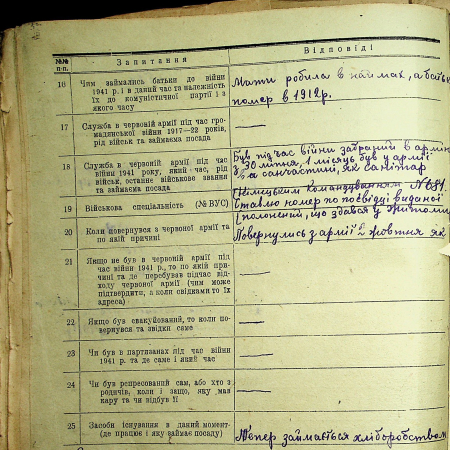 №№ п.п. Запитання Відповіді
16 Чим займались батьки до війни
1941 р. і в даний час та належність
їх до комуністичної партії і з
якого часу
Мати робила в наймах, а батько
помер в 1912 р.
17 Служба в червоній армії під час гро-
мадянської війни 1917—22 років,
рід військ та займаєма посада
—
18 Служба в червоній армії під час
війни 1941 року, який час, рід
військ, останнє військове звання
та займаєма посада
Був підчас війни забраний в армію
з 30 липня, 1 місяць був у армії
в санчастині, як санітар
19 Військова спеціальність (№ ВУО)
Німецьким командуванням №
ставлю номер по посвідці виданої
(полонений, що здався у Житомирі
20 Коли повернувся з червоної армії та
по якій причині
Повернувсь з армії 2 жовтня як
21 Якщо не був в червоній армії під
час війни 1941 р., то по якій при-
чині та де перебував підчас від-
ходу червоної армії (чим може
підтвердити, а коли свідками то їх
адреса)
—
22 Якщо був евакуйований, то коли по-
вернувся та звідки саме
—
23 Чи був в партизанах під час війни
1941 р. та де саме і який час
—
24 Чи був репресований сам, або хто з
родичів, коли і защо, яку мав
кару та чи відбув її
—
25 Засоби існування в даний момент-
(де працює і яку займає посаду)
Тепер займається хліборобством